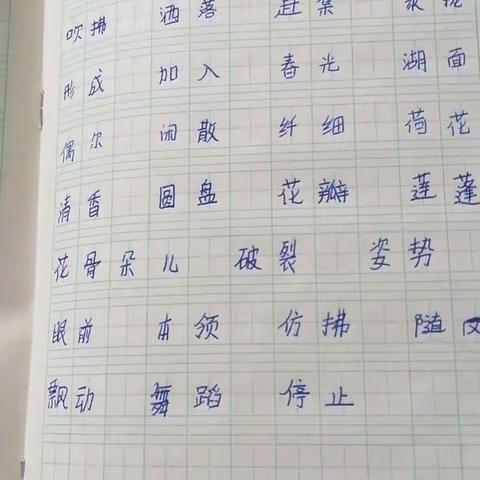 吹拂 洒落 赶集 聚拢
形成 加入 春光 湖面
偶尔 闲散 纤细 荷花
清香 圆盘 花瓣 莲蓬
花骨朵儿 破裂 姿势
眼前 本领 仿拂 随
飘动 舞蹈 停止